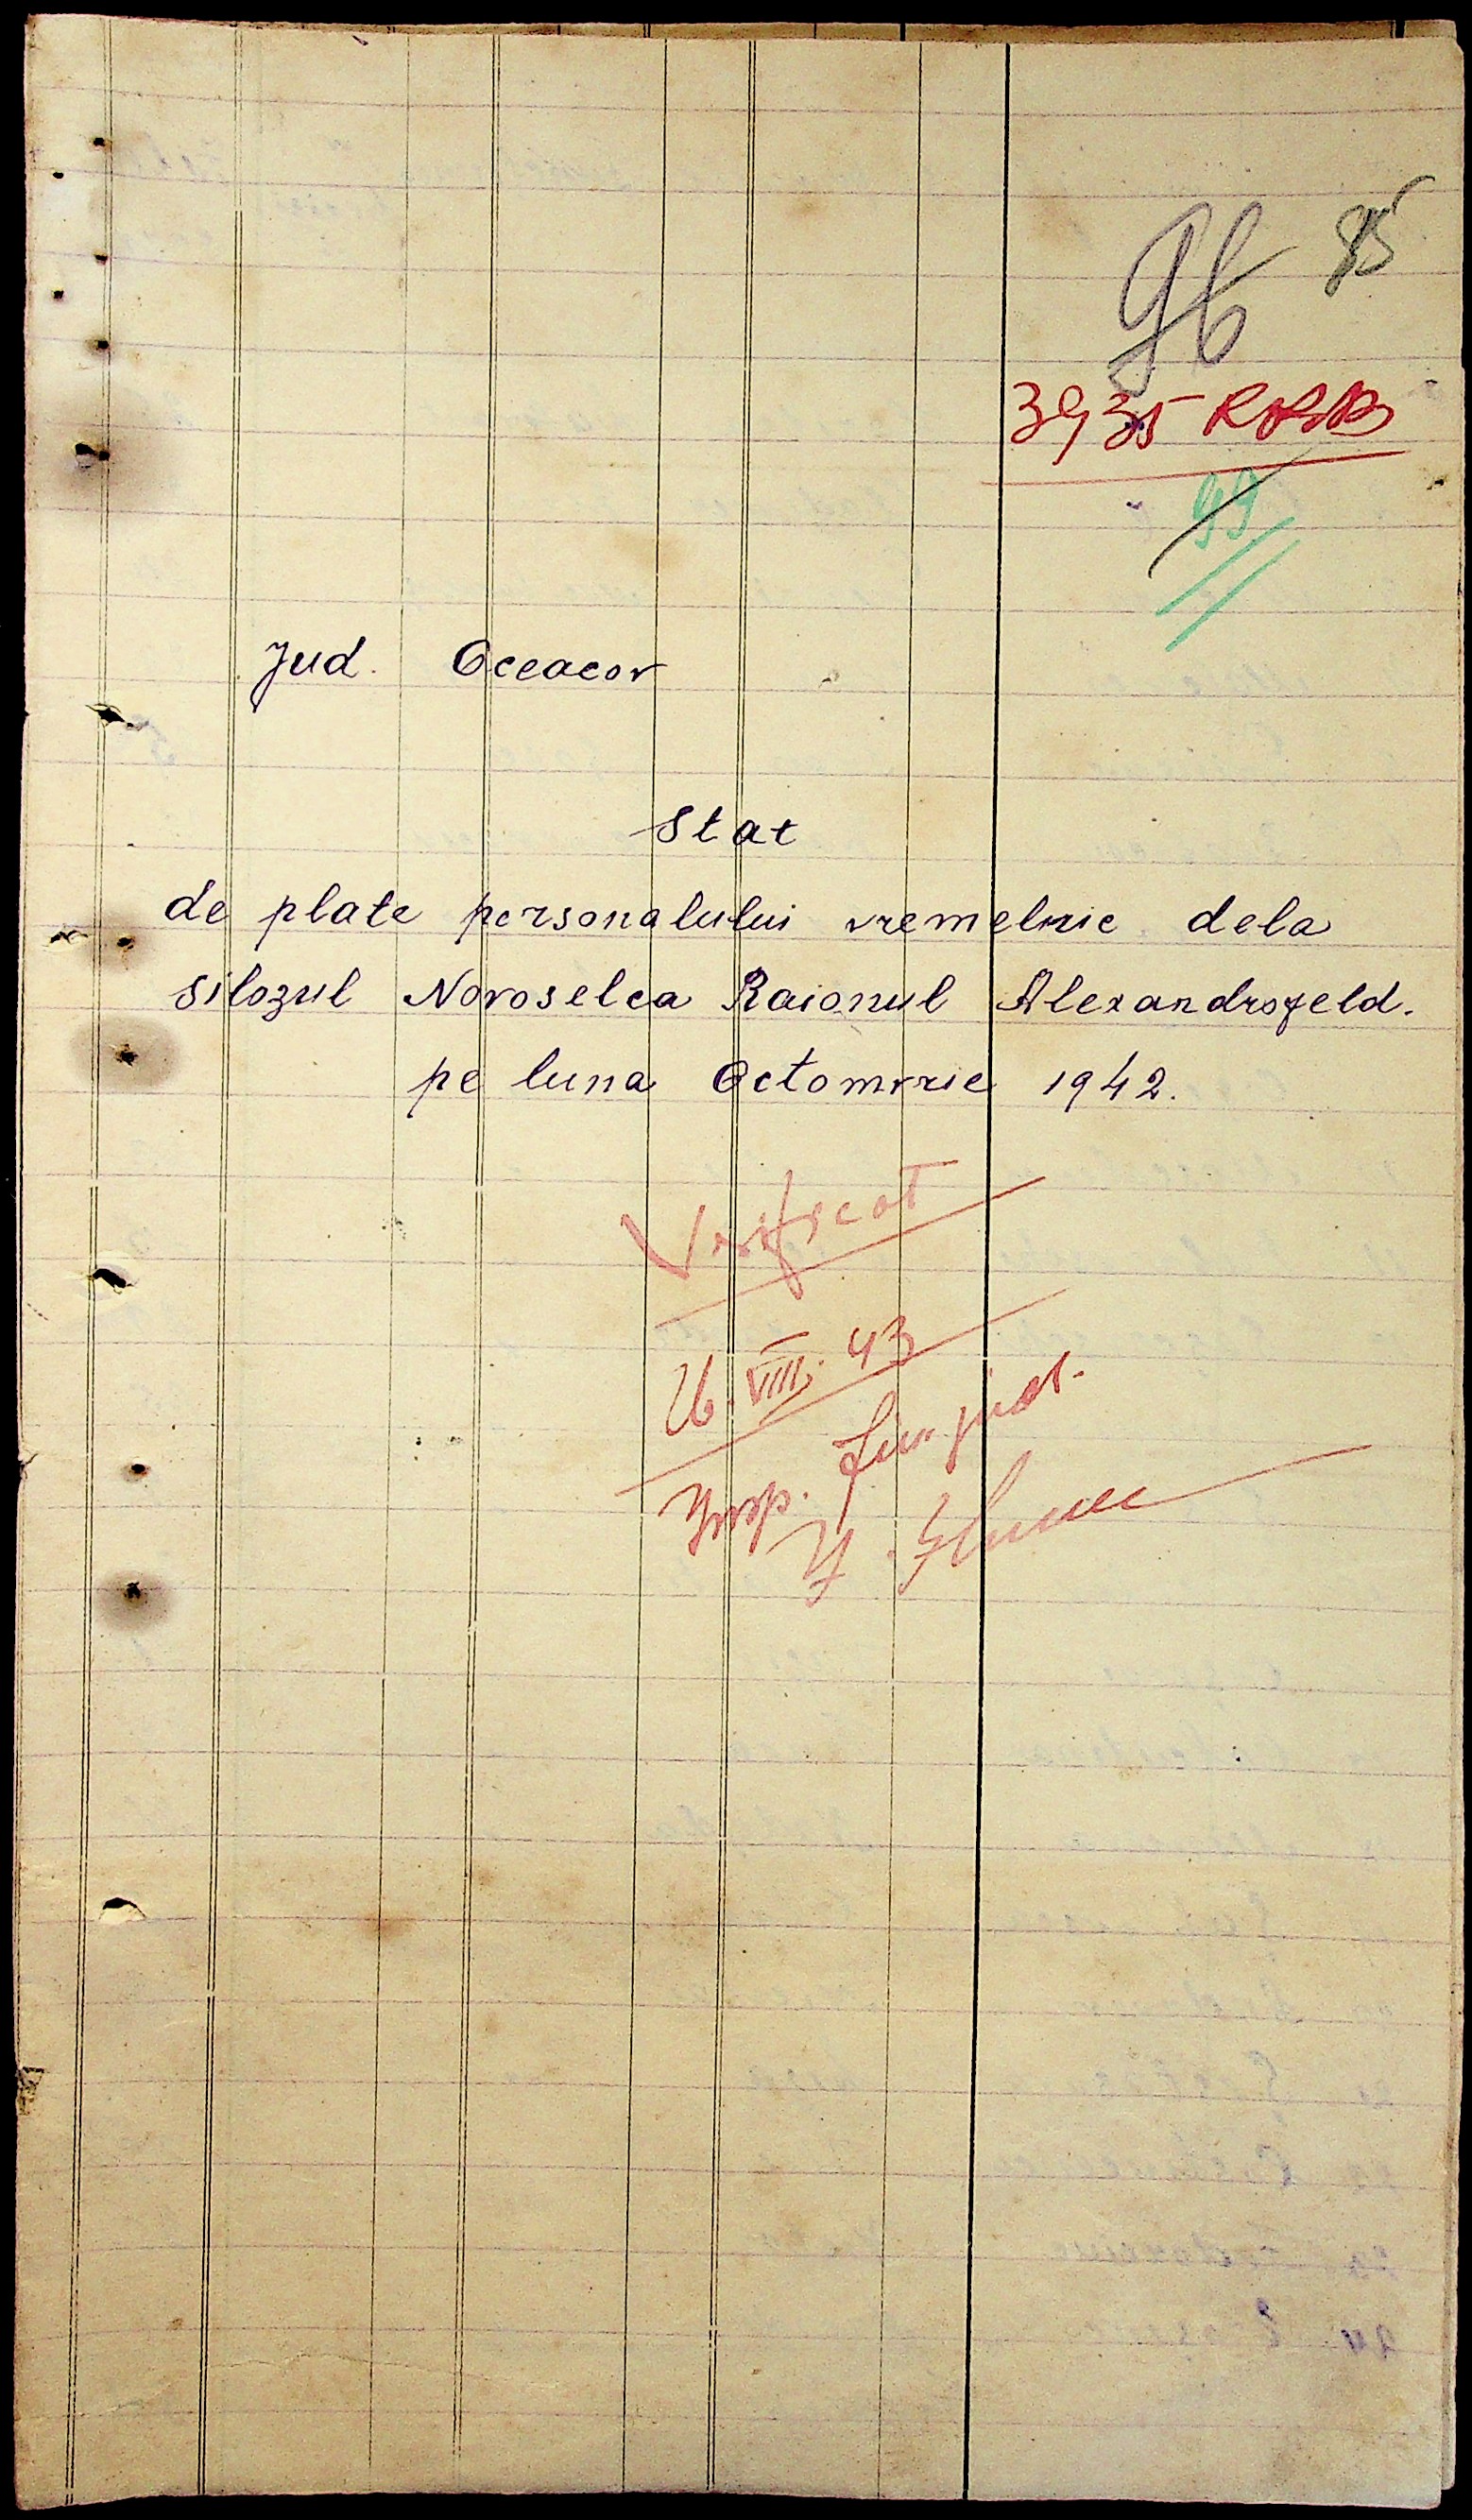 96 85
3935
99
Jud. Oceacov
Stat
de plate personalului vremelnic dela
silozul Novoselca Raionul Alexandrofeld.
pe luna Octomvrie 1942.
Verificat
26.VIII.43
Insp.